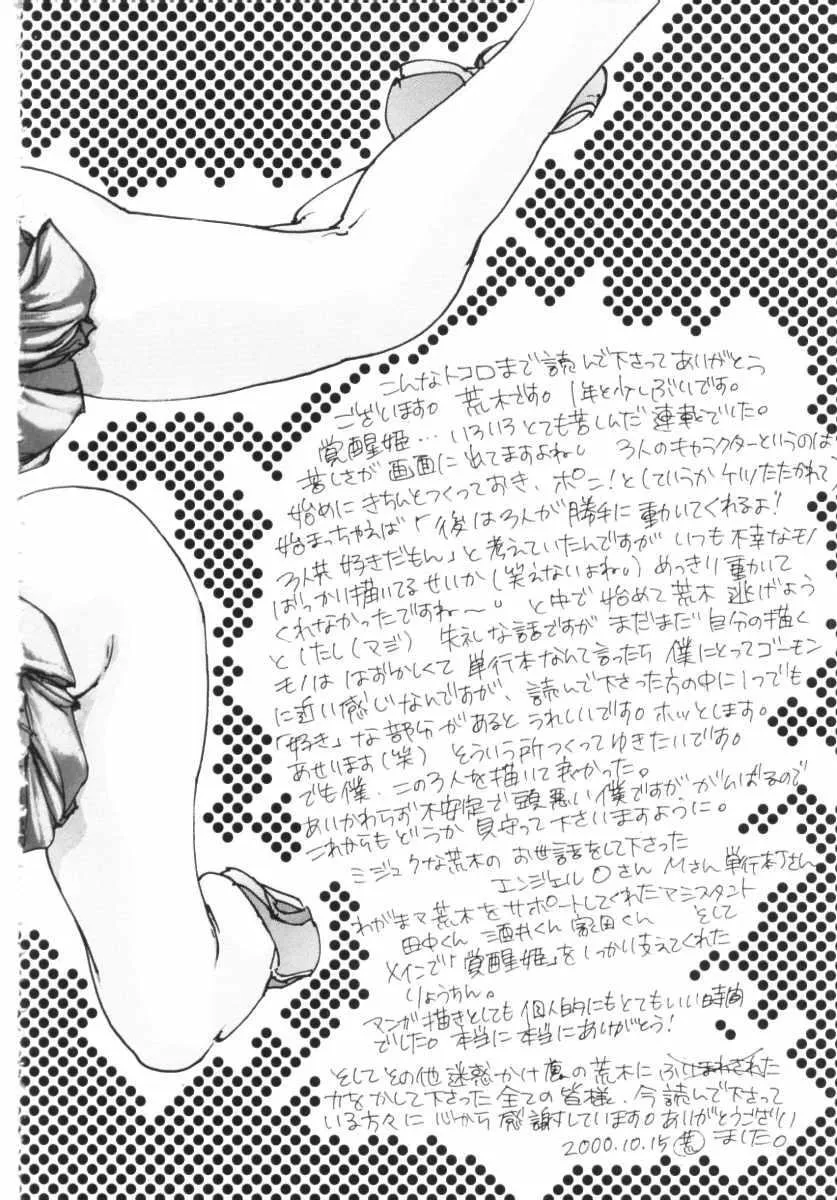 こんなトコロまで読んで下さってありがとう
ございます。荒木です。1年と少しぶりです。
覚醒姫…いろいろとても苦しんだ連載でした。
苦しさが画面に出てますよね。3人のキャラクターというのは
始めにきちんとつくっておき、ポン!と(ていうかケツたたかれて)
始まっちゃえば「後は3人が勝手に動いてくれるよ!
3人共好きだもん」と考えていたんですがいつも不幸なモノ
ばっかり描いてるせいか(笑えないよね。)めっきり動いて
くれなかったですね〜。と中で始めて荒木逃げよう
としたし(マジ) 失礼な話ですがまだまだ自分の描く
モノははずかしくて単行本なんて言ったら僕にとってゴーモン
に近い感じなんですが、読んで下さった方の中に1つでも
「好き」な部分があるとうれしいです。ホッとします。
あせります(笑) そういう所つくってゆきたいです。
でも僕、この3人を描いて良かった。
あいかわらず不安定で頭悪い僕ですががんばるので
これからもどうか見守って下さいますように。
ミジュクな荒木のお世話をして下さった
エンジェルOさん Mさん 単行本Jさん
わがままな荒木をサポートしてくれたアシスタント
田中くん 酒井くん 家田くん そして
メインで「覚醒姫」をしっかり支えてくれた
りょうちん。
マンガ描きとしても個人的にもとてもいい時間
でした。本当に本当にありがとう!
そしてその他迷惑かけ
の荒木に
力をかして下さった全ての皆様、今読んで下さって
いる方々に心から感謝しています。ありがとうござい
ました。
2000.10.15 荒